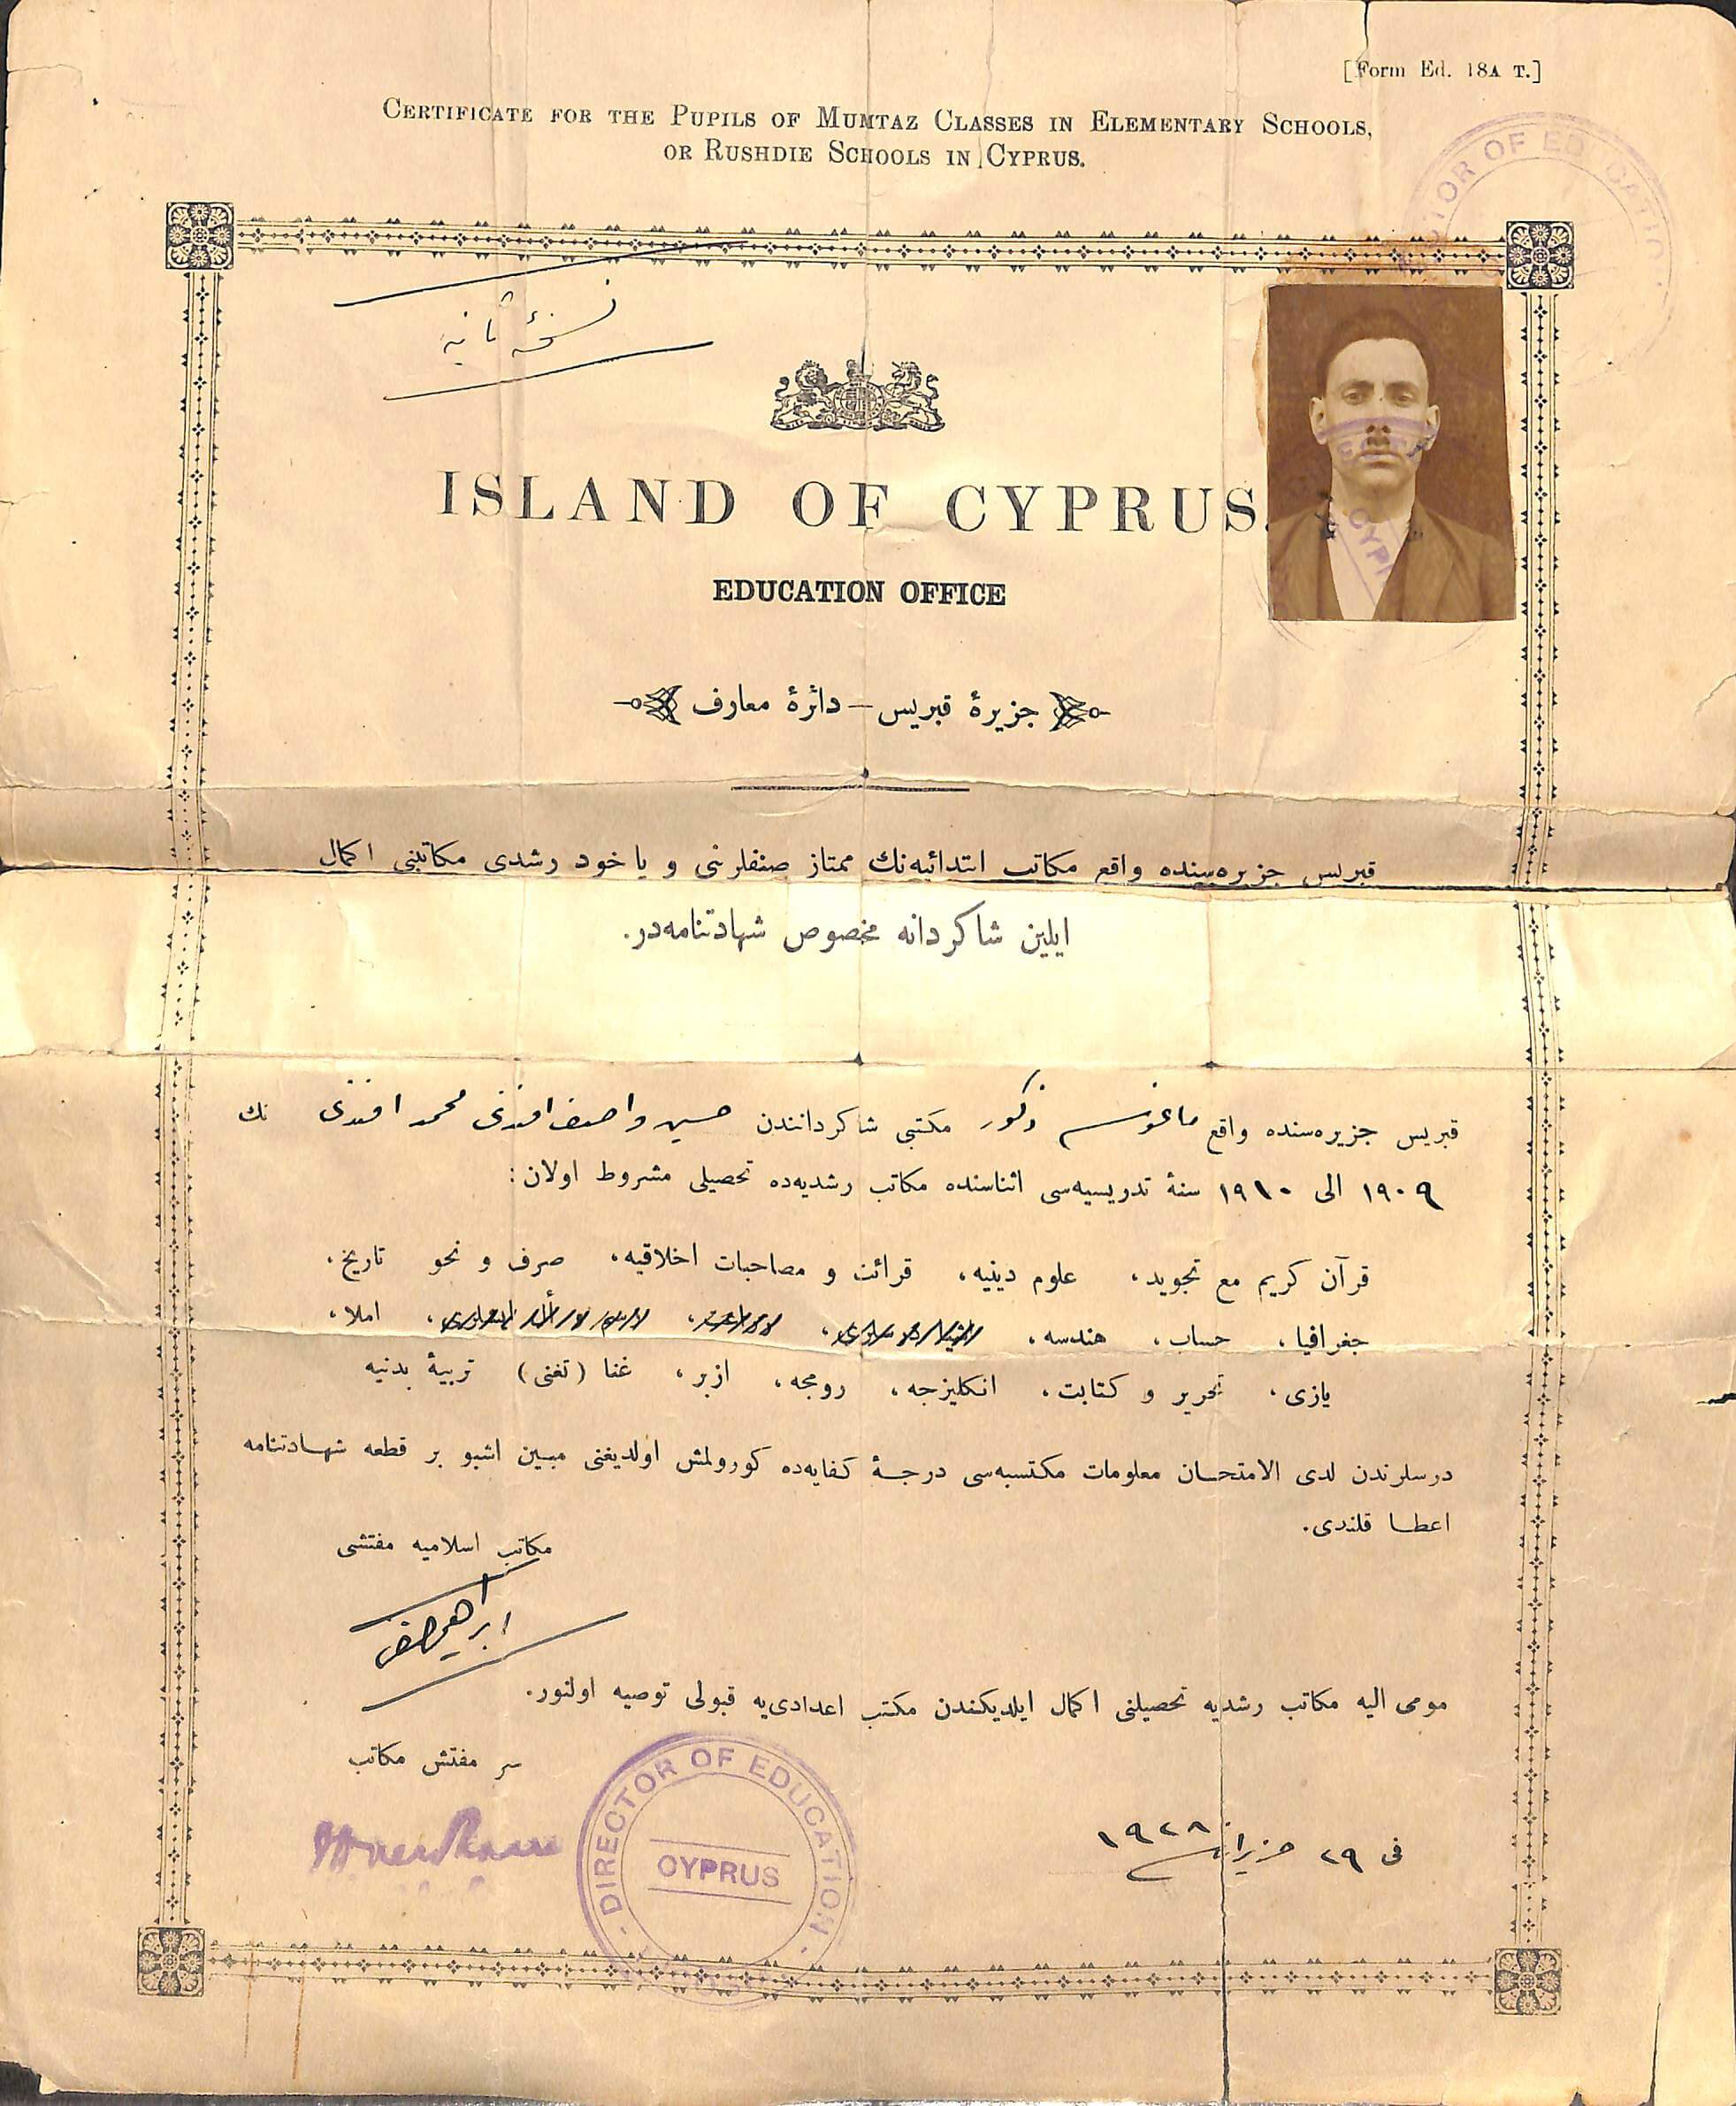 [Form Ed. 18A T.]
CERTIFICATE FOR THE PUPILS OF MUMTAZ CLASSES IN ELEMENTARY SCHOOLS,
OR RUSHDIE SCHOOLS IN CYPRUS.
DIRECTOR OF EDUCATION
نسخهٔ ثانیه
ISLAND OF CYPRUS.
EDUCATION OFFICE
جزیرهٔ قبریس — دائرهٔ معارف
قبریس جزیره‌سنده واقع مکاتب ابتدائیه‌نك ممتاز صنفلرنی و یاخود رشدی مکاتبنی اکمال
ایلین شاکردانه مخصوص شهادتنامه‌در.
قبریس جزیره‌سنده واقع ماغوسه ذکور مکتبی شاکردانندن حسین واصف افندی محمد افندی نك
١٩٠٩ الی ١٩١٠ سنهٔ تدریسیه‌سی اثناسنده مکاتب رشدیه‌ده تحصیلی مشروط اولان :
قرآن کریم مع تجوید، علوم دینیه، قرائت و مصاحبات اخلاقیه، صرف و نحو تاریخ،
جغرافیا، حساب، هندسه، املا،
یازی، تحریر و کتابت، انکلیزجه، رومجه، ازبر، غنا (تغنی) تربیهٔ بدنیه
درسلرندن لدی الامتحان معلومات مکتسبه‌سی درجهٔ کفایه‌ده کورولمش اولدیغنی مبین اشبو بر قطعه شهادتنامه
اعطا قلندی.
مکاتب اسلامیه مفتشی
ابراهیم
مومی الیه مکاتب رشدیه تحصیلنی اکمال ایلدیکندن مکتب اعدادی‌یه قبولی توصیه اولنور.
سر مفتش مکاتب
DIRECTOR OF EDUCATION
CYPRUS
فی ٢٩ حزیران ١٩٢٨